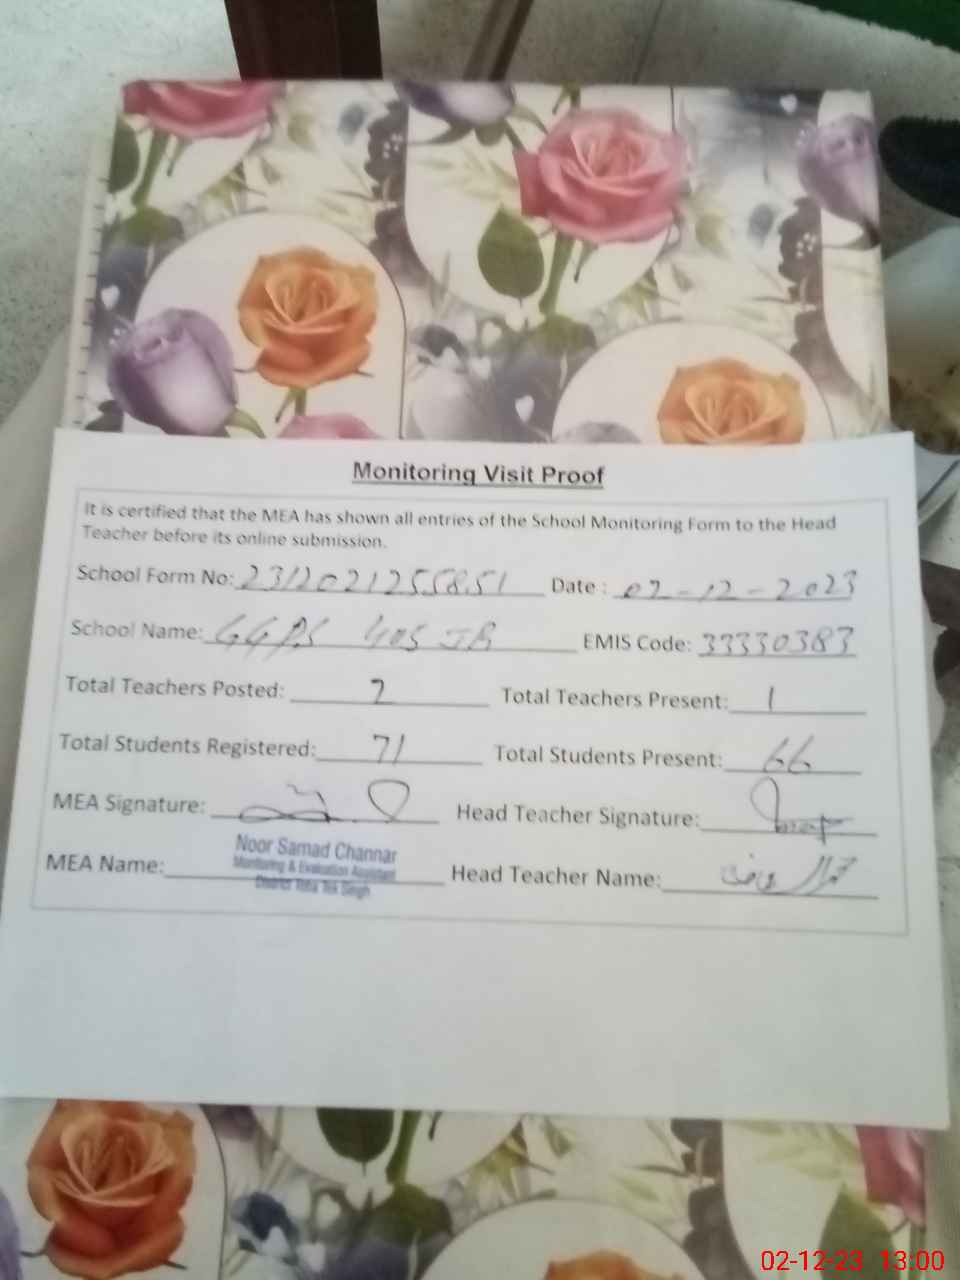 Monitoring Visit Proof
It is certified that the MEA has shown all entries of the School Monitoring Form to the Head
Teacher before its online submission.
School Form No: 2312021255851 Date : 02-12-2023
School Name: GGPS 405 JB EMIS Code: 33330383
Total Teachers Posted: 2 Total Teachers Present: 1
Total Students Registered: 71 Total Students Present: 66
MEA Signature: Head Teacher Signature:
Noor Samad Channar
Monitoring & Evaluation Assistant
District Toba Tek Singh
MEA Name: Head Teacher Name:
02-12-23 13:00